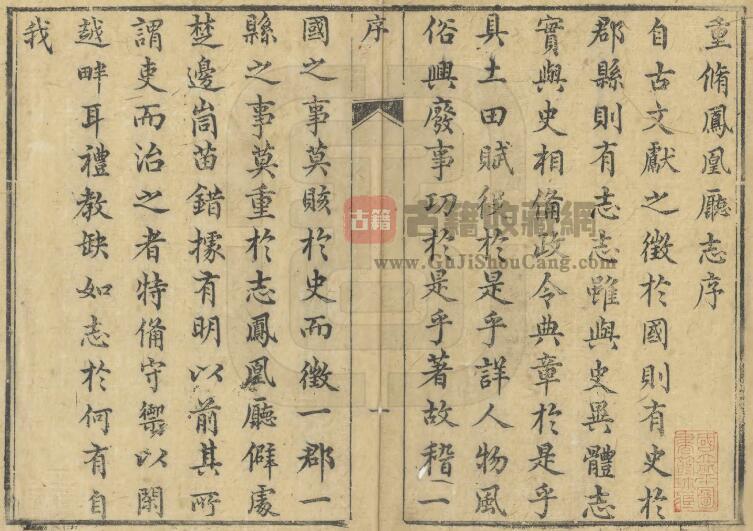 重脩鳳凰廳志序
自古文獻之徵於國則有史於
郡縣則有志志雖與史異體志
實與史相備政令典章於是乎
具土田賦役於是乎詳人物風
俗興廢事功於是乎著故稽一
序
國之事莫賅於史而徵一郡一
縣之事莫重於志鳳凰廳僻處
楚邊峝苗錯據有明以前其所
謂吏而治之者特備守禦以閑
越畔耳禮教缺如志於何有自
我
古籍
古籍收藏網
www.GuJiShouCang.com